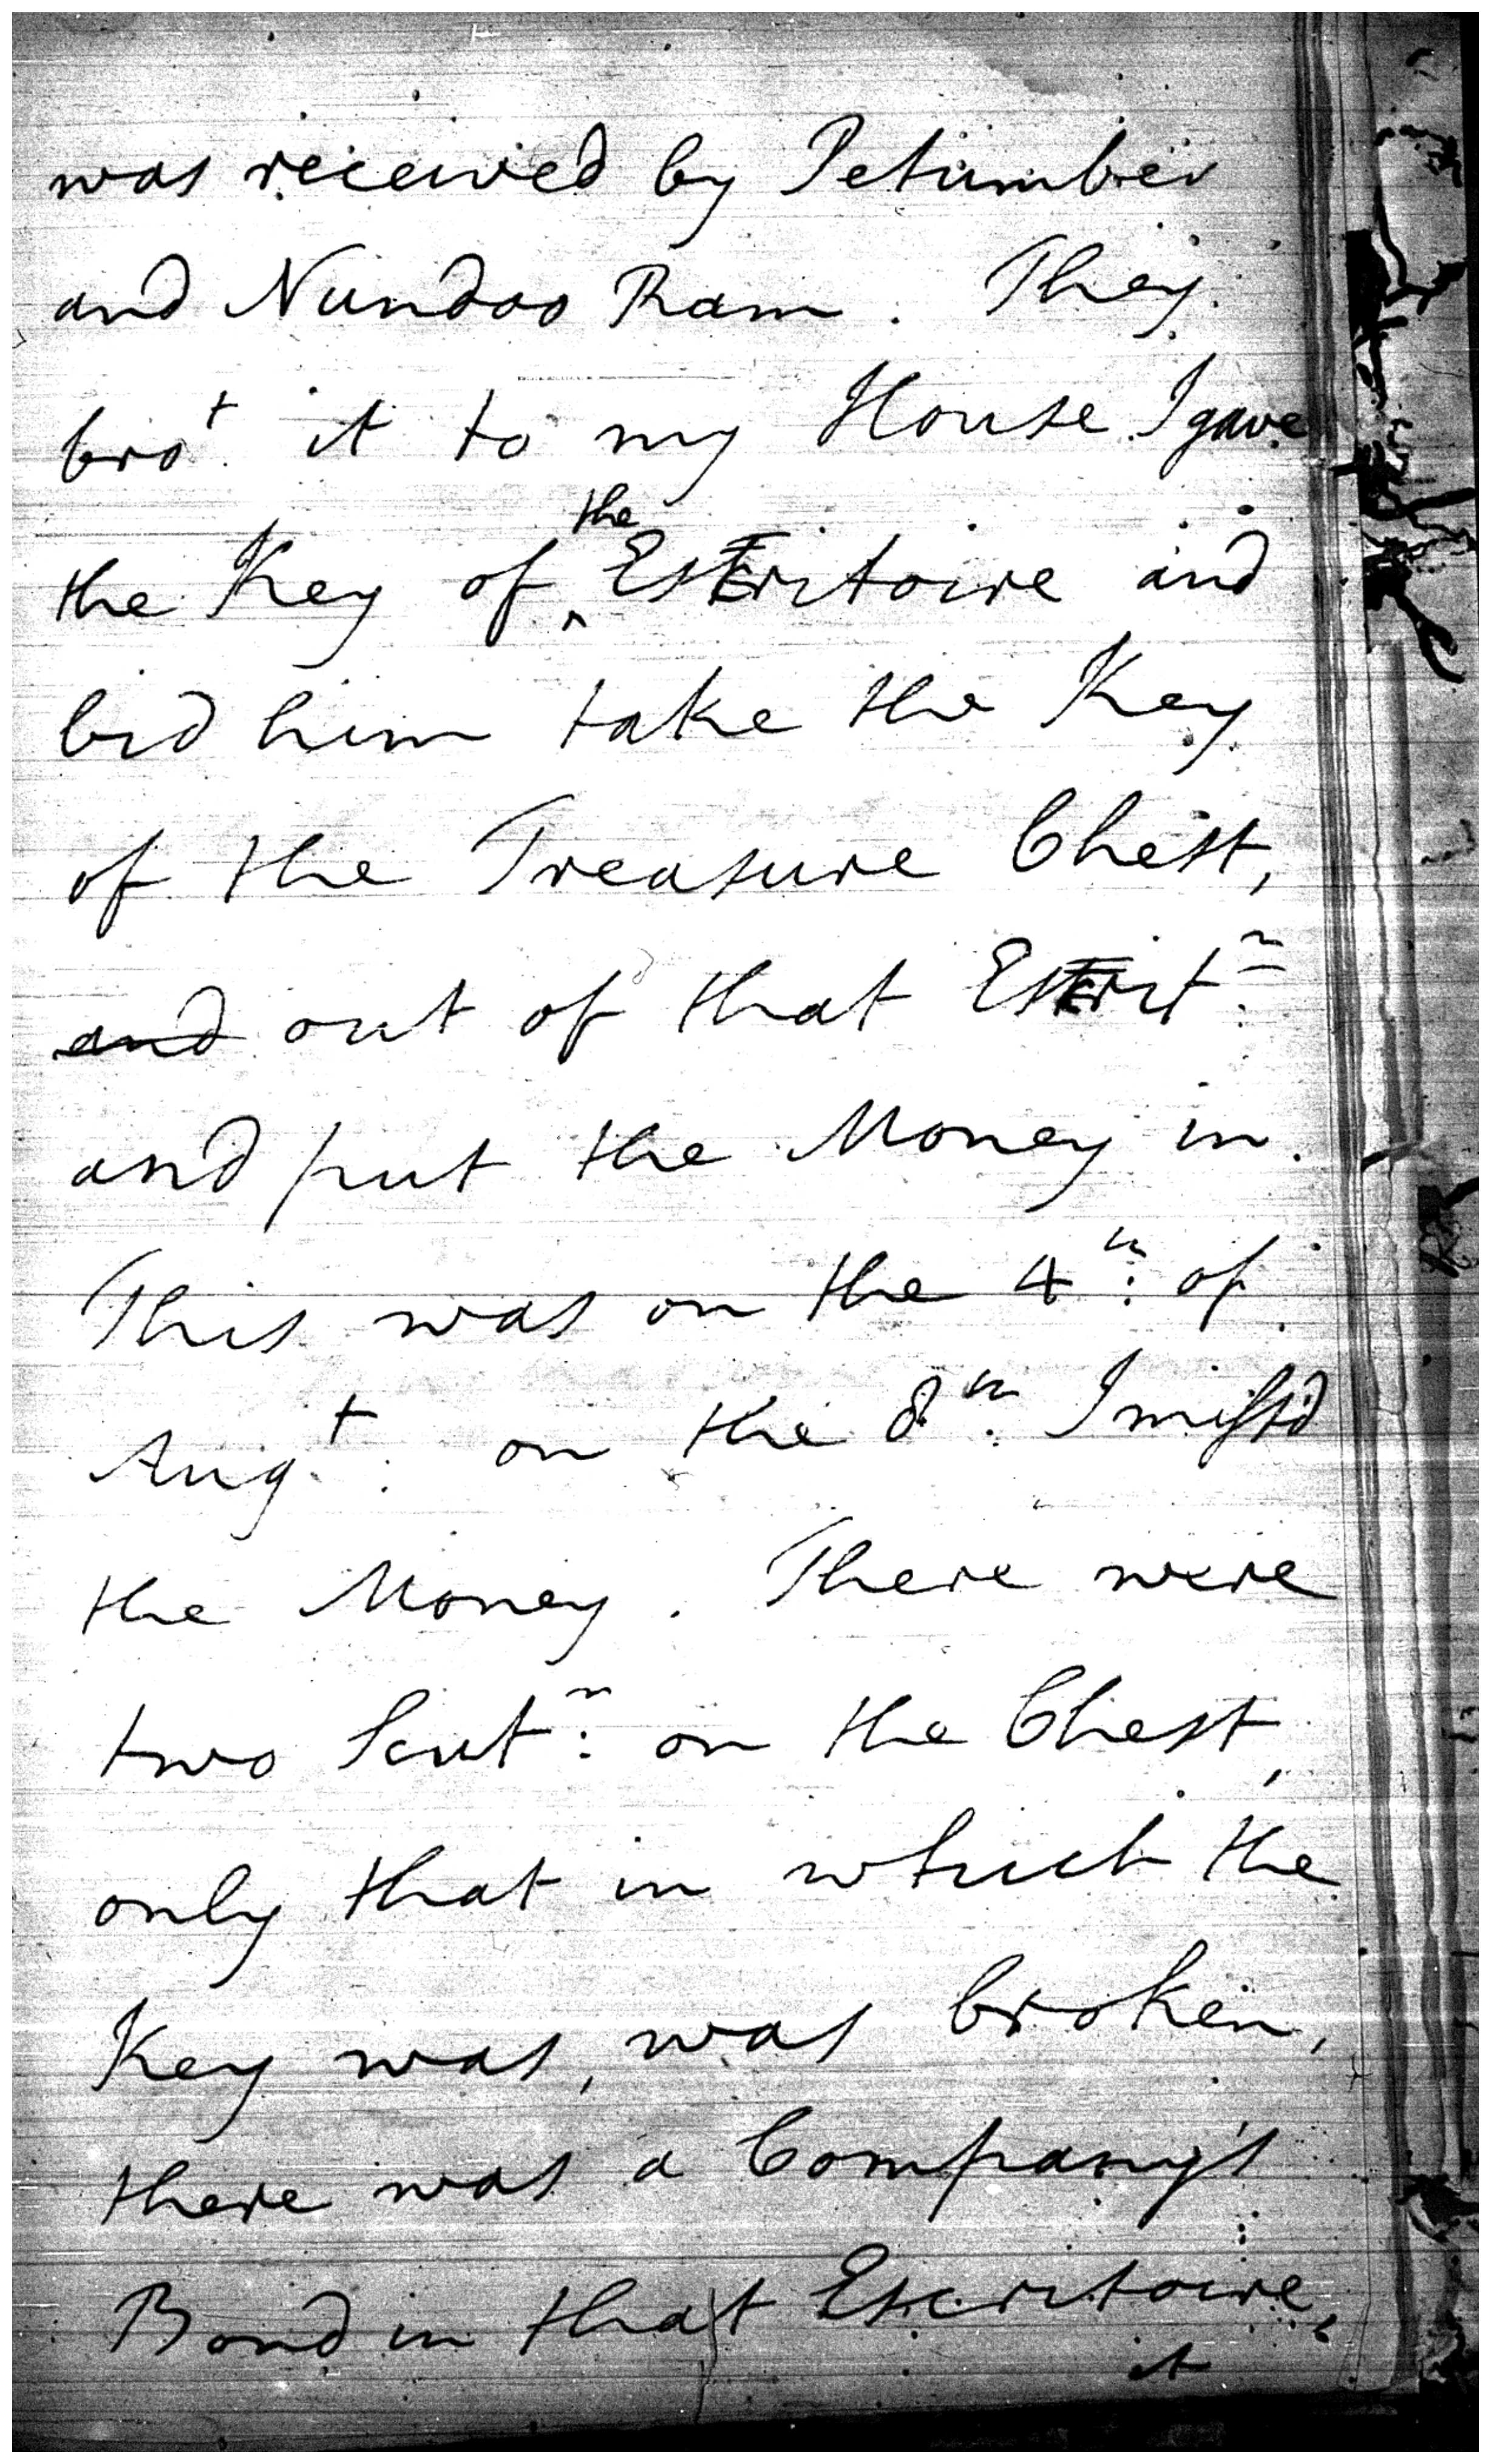 was received by Petumber
and Nundoo Ram. They
bro^t. it to my House I gave
the Key of ^the Escritoire and
bid him take the Key
of the Treasure Chest,
and out of that Escrit^re:
and put the Money in.
This was on the 4^th: of
Aug^t: on the 8^th: I miss'd
the Money. There were
two on the Chest,
only that in which the
Key was, was broken,
there was a Company's
Bond in that Escritoire,
it